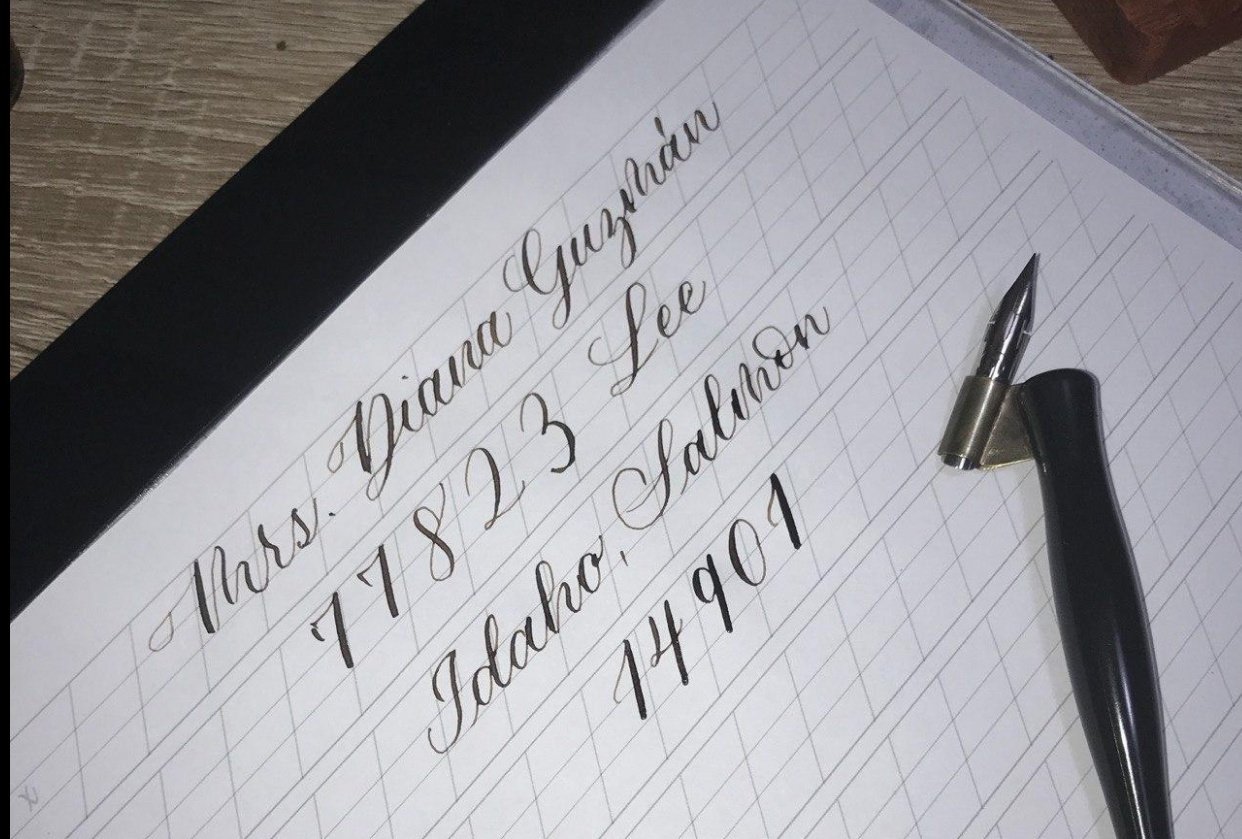 Mrs. Diana Guzmán
77823 Lee
Idaho, Salmon
14901